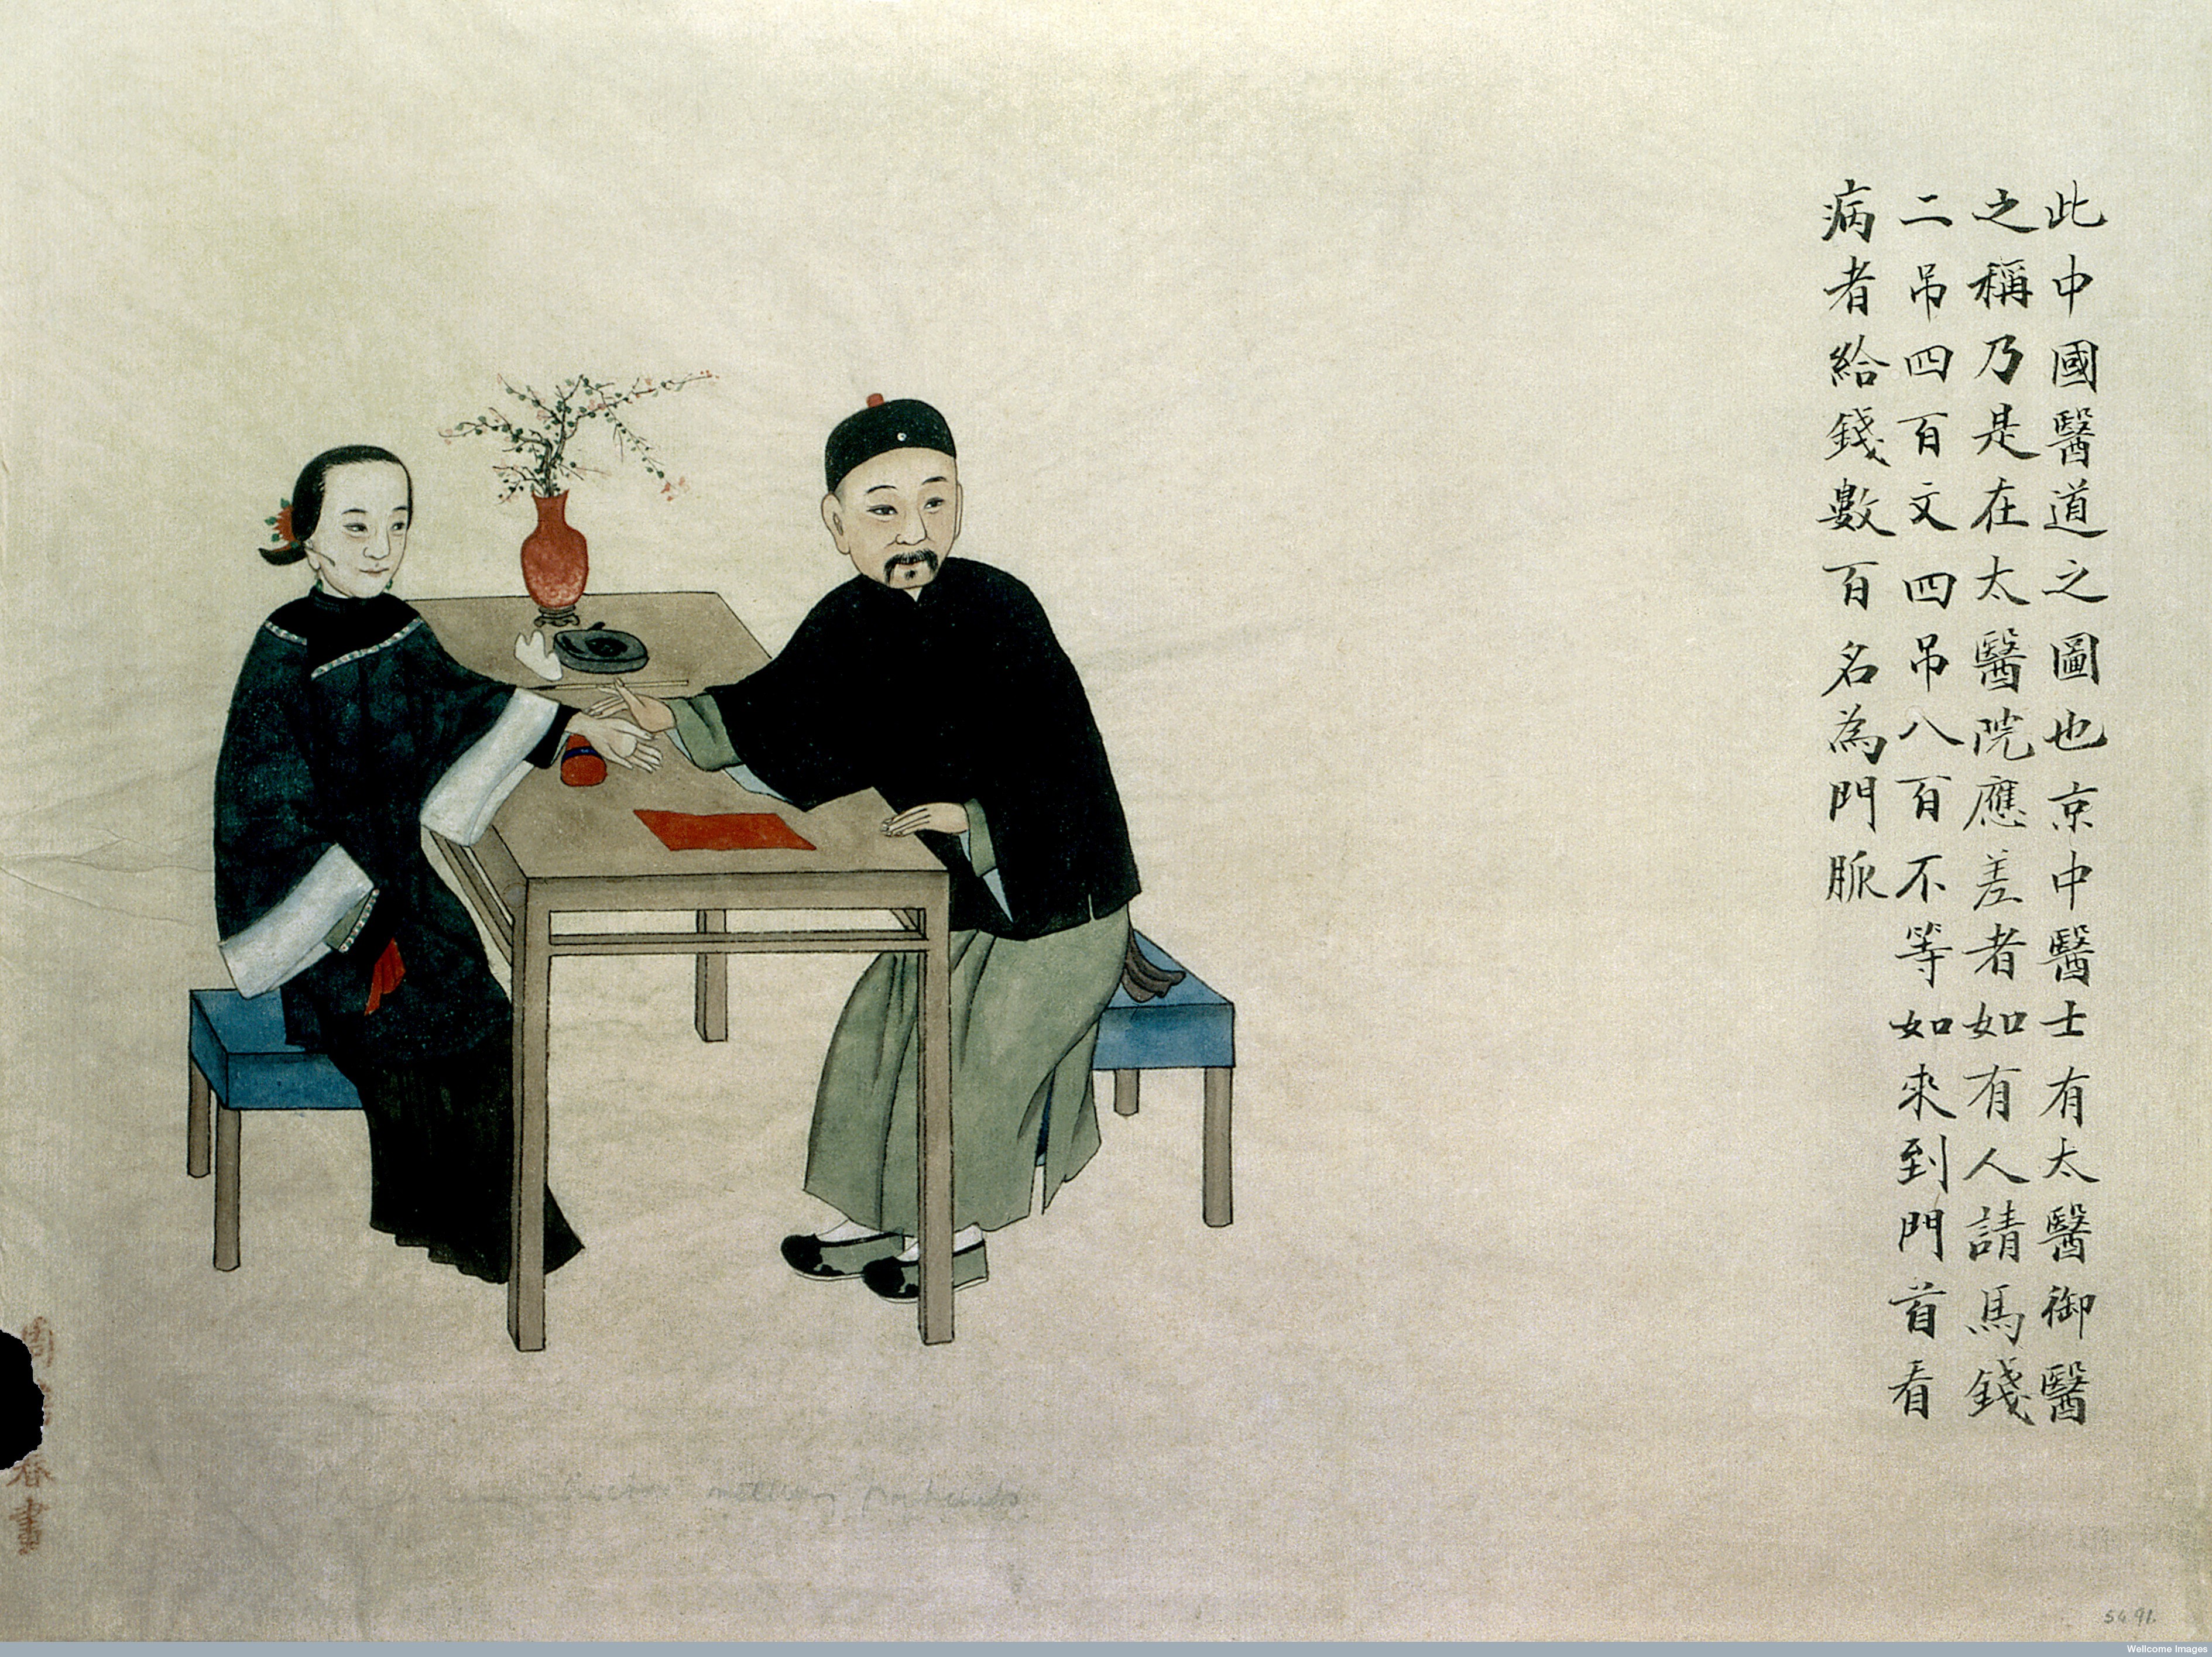 此中國醫道之圖也京中醫士有太醫御醫
之稱乃是在太醫院應差者如有人請馬錢
二吊四百文四吊八百不等如來到門首看
病者給錢數百名為門脈
周
春畫
5491.
Wellcome Images